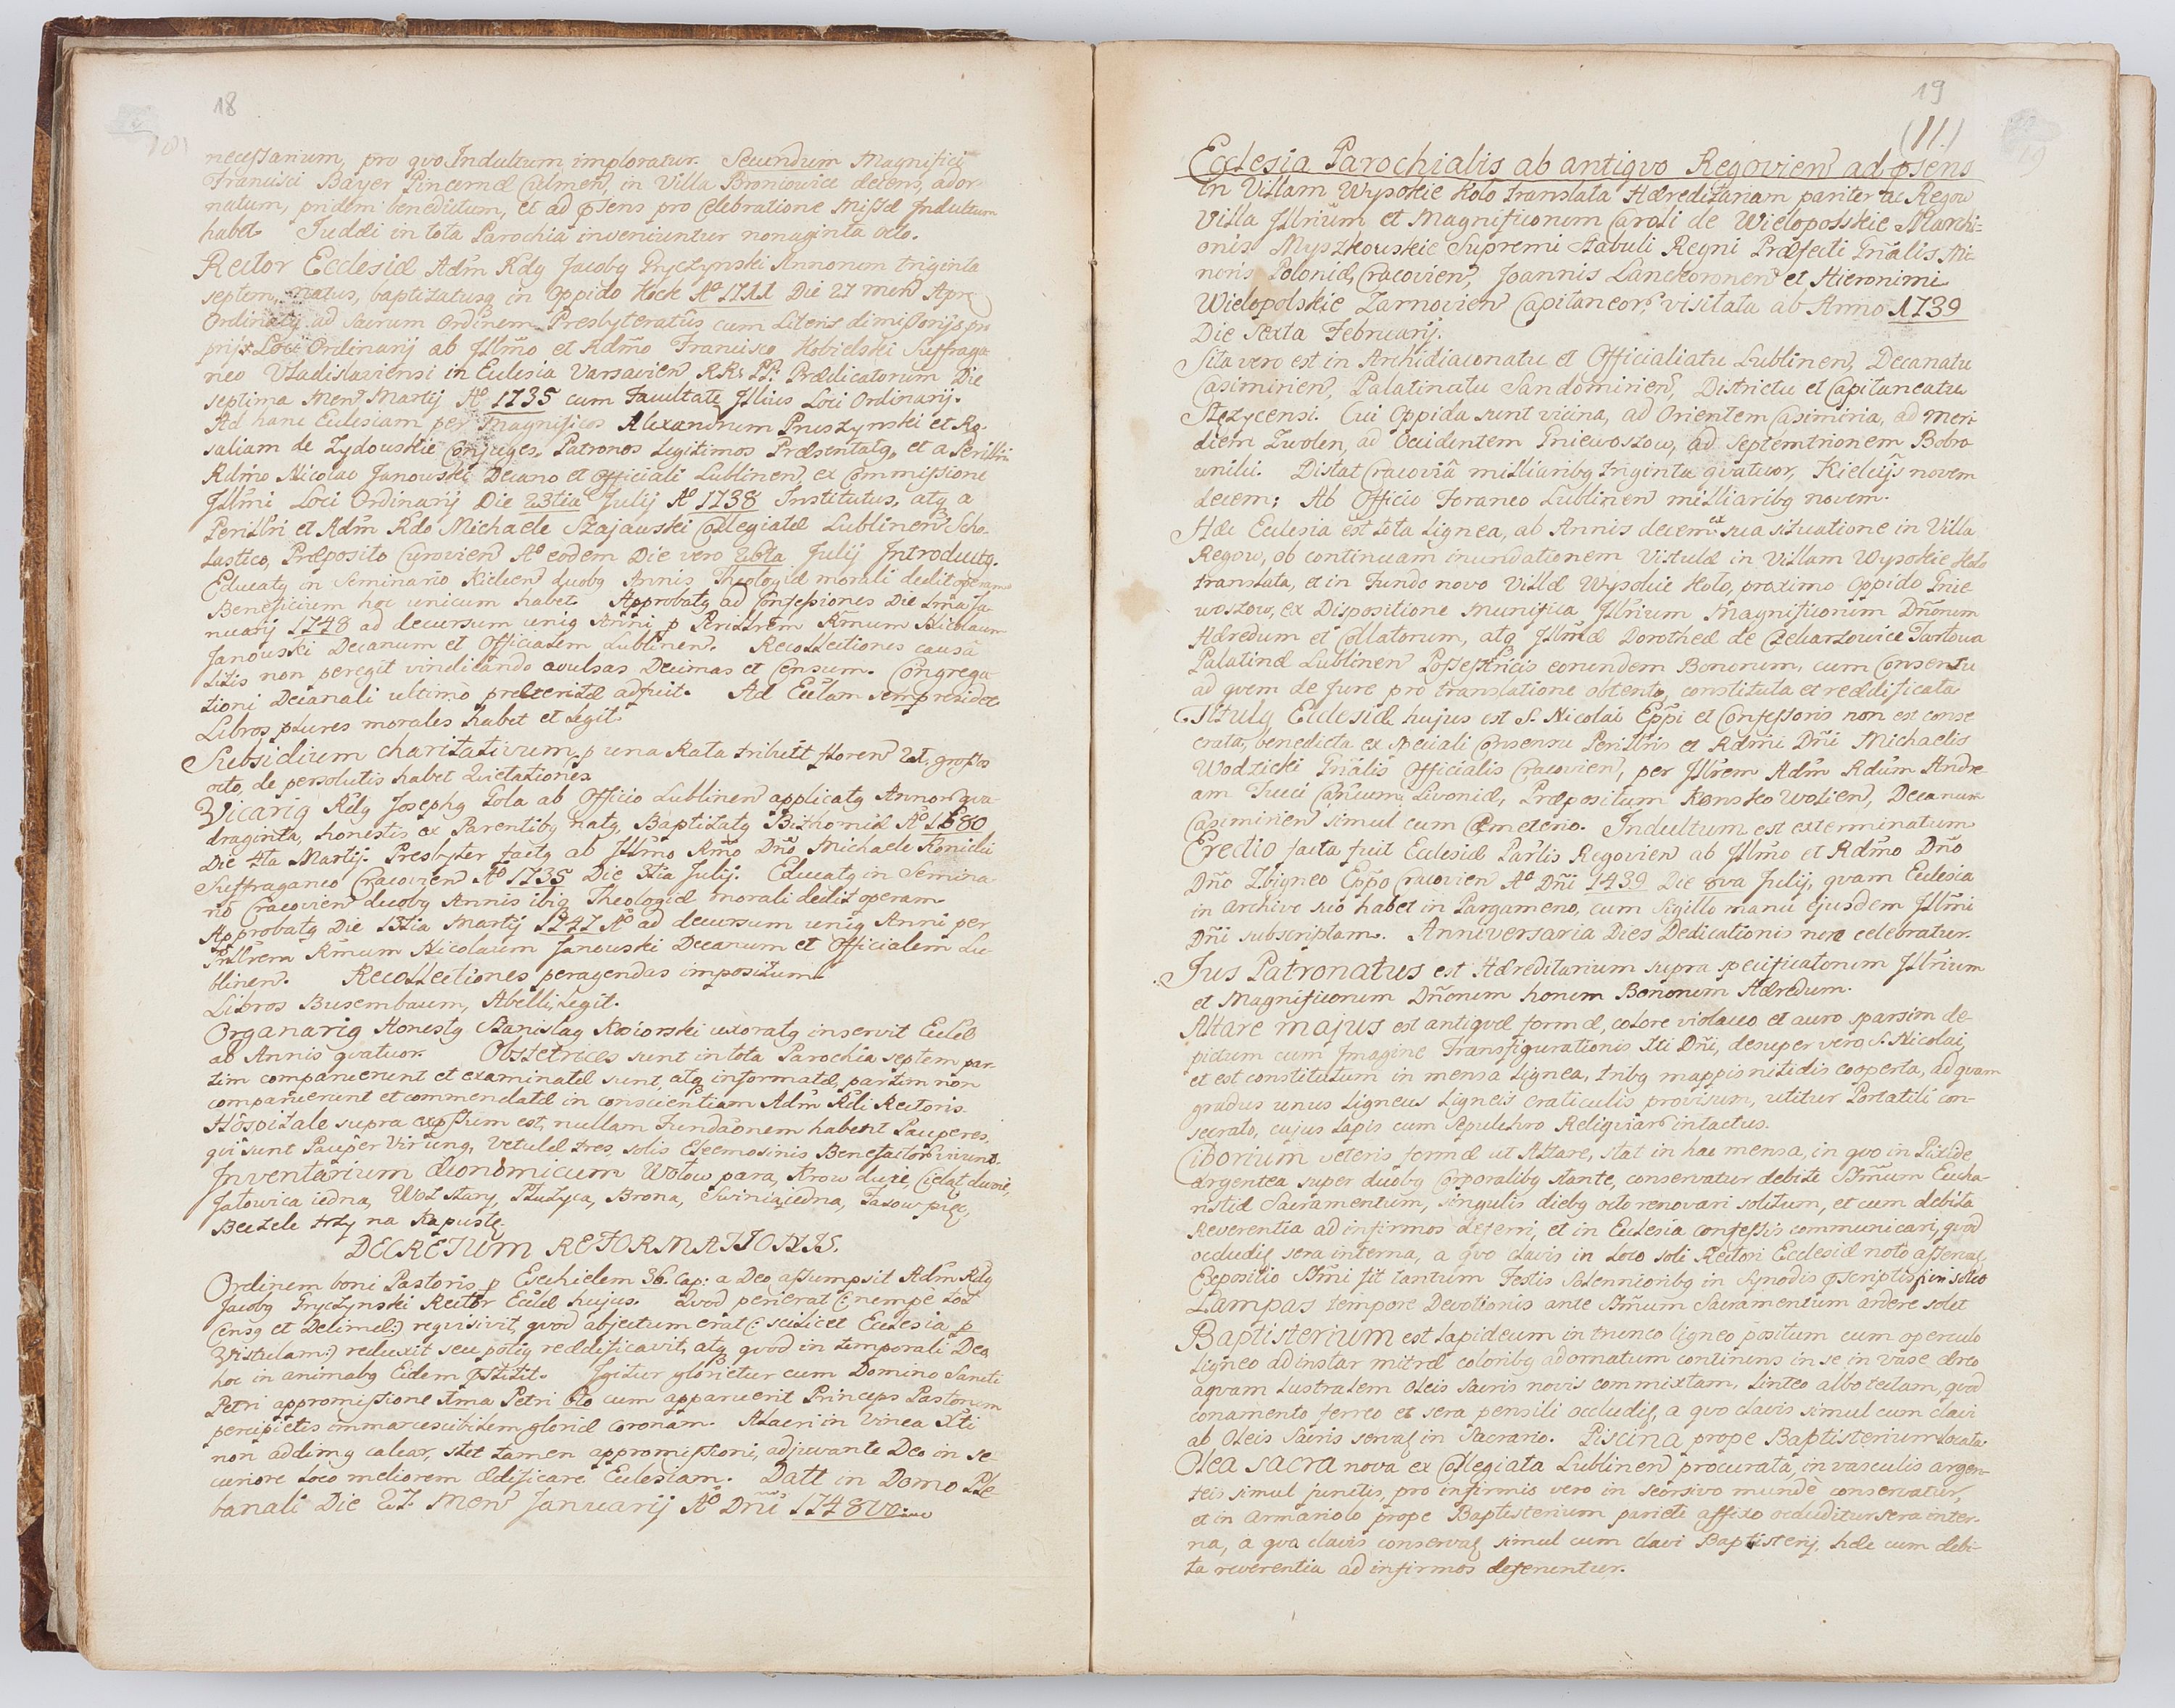 18
necessarium, pro qvo Indultum imploratur. Secundum Magnifici
Francisci Bayer Pincernæ Culmen, in Villa Broniowice decens, ador-
natum, pridem benedictum, et ad pñsens pro Celebratione Missæ Indultum
habet. Judæi in tota Parochia inveniuntur nonaginta octo.
Rector Ecclesiæ Adm Rdg Jacobg Gryczynski Annorum triginta
septem, natus, baptizatusq in Oppido Kock Aº 1711 Die 27 men Apr
Ordinatg ad Sacrum Ordinem Presbyteratus cum Literis dimissorijs pro
prijs Loci Ordinarij ab Illmo et Rdmo Francisco Kobielski Suffraga-
neo Vladislaviensi in Ecclesia Varsavien RR: PP: Prædicatorum Die
septima Men Martij Aº 1735 cum Facultate Illius Loci Ordinarij.
Ad hanc Ecclesiam per Magnificos Alexandrum Pruszynski et Ro-
saliam de Zydowskie Conjuges, Patronos Legitimos Præsentatg, et a Perillri
Rdmo Nicolao Janowski Decano et Officiali Lublinen, ex Commissione
Illmi Loci Ordinarij Die 23tia Julij Aº 1738 Institutus, atq a
Perillri et Adm Rdo Michaele Szajawski Collegiatæ Lublinen Scho-
lastico, Præposito Curovien Aº eodem Die vero 26ta Julij Introductg.
Educatg in Seminario Kielcen duobg Annis, Theologiæ morali dedit operam
Beneficium hoc unicum habet. Approbatg ad Confessiones Die 1ma Ja-
nuarij 1748 ad decursum unig Anni p Perillrem Rmum Nicolaum
Janowski Decanum et Officialem Lublinen. Recollectiones causa
litis non peregit vindicando avulsas Decimas et Censum. Congrega-
tioni Decanali ultimo præteritæ adfuit. Ad Ecclam semp residet
Libros plures morales habet et Legit.
Subsidium charitativum p una Rata tribuit floren 21. grossos
octo, de persolutis habet Qvietationes
Vicarig Rdg Josephg Gola ab Officio Lublinen applicatg Annor qva-
draginta, honestis ex Parentibg natg, Baptizatg Bizhomiæ Aº 1680
Die 4ta Martij. Presbyter factg ab Illmo Rmo Dño Michaele Kunicki
Suffraganeo Cracovien Aº 1735 Die 3tia Julij. Educatg in Semina-
rio Cracovien duobg Annis ibiq Theologiæ morali dedit operam
Approbatg Die 13tia Martij 1747 Aº ad decursum unig Anni per
Prillrem Rmum Nicolaum Janowski Decanum et Officialem Lu-
blinen. Recollectiones peragendas impositum
Libros Busembaum, Abelli, Legit.
Organarig Honestg Stanislag Koziorski uxoratg inservit Ecclæ
ab Annis qvatuor. Obstetrices sunt in tota Parochia septem par-
tim comparuerunt et examinatæ sunt, atq informatæ, partim non
comparuerunt et commendatæ in conscientiam Adm Rdi Rectoris.
Hospitale supra expssum est, nullam Fundaonem habent Pauperes,
qvi sunt Pauper Vir ung, Vetulæ tres, solis Eleemosinis Benefactor vivunt.
Inventarium œconomicum Wołow para, Krow dwie, Cieląt dwoie,
Jałowica iedna, Woł stary, Płużyca, Brona, Swinia iedna, Fasow pięć,
Beczele trzy na Kapustę.
DECRETUM REFORMATIONIS.
Ordinem boni Pastoris p Ezechielem 36. Cap: a Deo assumpsit Adm Rdg
Jacobg Gryczynski Rector Ecclæ hujus. Qvod perierat (: nempe tot
Censg et Decimæ :) reqvisivit, qvod abjectum erat (: scilicet Ecclesia p
Vistulam:) reduxit seu potig reædificavit, atq qvod in temporali Deo
hoc in animabg Eidem pstitit. Igitur glorietur cum Domino Sancti
Petri appromissione 1ma Petri 5to cum apparuerit Princeps Pastorum
percipietis immarcescibilem gloriæ coronam. Alacri in Vinea Xti
non addimg calcar, stet tamen appromissioni, adjuvante Deo in se-
curiore Loco meliorem ædificare Ecclesiam. Datt in Domo Ple-
banali Die 27. Men Januarij Aº Dñi 1748vo.
19
(11.)
Ecclesia Parochialis ab antiqvo Regovien ad pñsens
in Villam Wysokie Koło translata Hæreditariam pariter ac Regow
Villa Illrium et Magnificorum Caroli de Wielopolskie Marchi-
onis Myszkowskie Supremi Stabuli Regni Præfecti Gñalis Mi-
noris Poloniæ, Cracovien, Joannis Lanckoronen et Hieronimi
Wielopolskie Zarnovien Capitaneor, visitata ab Anno 1739
Die Sexta Februarij.
Sita vero est in Archidiaconatu et Officialiatu Lublinen, Decanatu
Casimirien, Palatinatu Sandomirien, Districtu et Capitaneatu
Stęzycensi. Cui Oppida sunt vicina, ad Orientem Casimiria, ad Meri-
diem Zwolen, ad Occidentem Gniewoszow, ad Septemtrionem Bobro-
wniki. Distat Cracoviâ milliaribg triginta qvatuor, Kielcijs novem
decem; Ab Officio Foraneo Lublinen milliaribg novem.
Hæc Ecclesia est tota Lignea, ab Annis decem et sua situatione in Villa
Regow, ob continuam inundationem Vistulæ in Villam Wysokie Koło
translata, et in Fundo novo Villæ Wysokie Koło, proximo Oppido Gnie-
woszow, ex Dispositione Munifica Illrium Magnificorum Dñorum
Hæredum et Collatorum, atq Illmæ Dorotheæ de Czekarzowice Tarłowa
Palatinæ Lublinen Possestricis eorundem Bonorum, cum Consensu
ad qvem de Jure pro translatione obtento, constituta et reædificata
Titulg Ecclesiæ hujus est S. Nicolai Eppi et Confessoris non est conse-
crata, benedicta ex speciali Consensu Perillris et Rdmi Dñi Michaelis
Wodzicki Gñalis Officialis Cracovien, per Illrem Adm Rdum Andre-
am Tucci Canonicum Livoniæ, Præpositum Konsko Wolien, Decanum
Casimirien simul cum Cæmeterio. Indultum est exterminatum
Erectio facta fuit Ecclesiæ Parlis Regovien ab Illmo et Rdmo Dno
Dño Zbigneo Eppo Cracovien Aº Dñi 1439 Die 8va Julij, qvam Ecclesia
in Archivo suo habet in Pargameno, cum Sigillo manu ejusdem Illmi
Dñi subscriptam. Anniversaria Dies Dedicationis non celebratur.
Jus Patronatus est Hæreditarium supra specificatorum Illrium
et Magnificorum Dñorum horum Bonorum Hæredum.
Altare majus est antiqvæ formæ, colore violaceo et auro sparsim de-
pictum cum Imagine Transfigurationis Xti Dñi, desuper vero S. Nicolai,
et est constitutum in mensa Lignea, tribg mappis nitidis cooperta, ad qvam
gradus unus Ligneus Ligneis craticulis provisum, utitur Portatili con-
secrato, cujus Lapis cum Sepulchro Reliqviar intactus.
Ciborium veteris formæ ut Altare, stat in hac mensa, in qvo in Pixide
Argentea super duobg Corporalibg stante, conservatur debite SSmum Eucha-
ristiæ Sacramentum, singulis diebg octo renovari solitum, et cum debita
Reverentia ad infirmos deferri, et in Ecclesia Confessis communicari, qvod
occludit sera interna, a qvo clavis in Loco soli Rectori Ecclesiæ noto asservat.
Expositio SSmi fit tantum Festis Solennioribg in Synodis pscriptis
Lampas tempore Devotionis ante SSmum Sacramentum ardere solet
Baptisterium est Lapideum in trunco ligneo positum cum operculo
Ligneo ad instar mitræ coloribg adornatum continens in se in vase æreo
aqvam Lustralem Oleis Sacris novis commixtam, Linteo albo tectam, qvod
conamento ferreo et sera pensili occludit, a qvo clavis simul cum clavi
ab Oleis Sacris servat in Sacrario. Piscina prope Baptisterium Locata
Olea Sacra nova ex Collegiata Lublinen procurata, in vasculis argen-
teis simul junctis, pro infirmis vero in seorsivo mundè conservatur,
et in armariolo prope Baptisterium parieti affixo occluditur sera inter-
na, a qva clavis conservat simul cum clavi Baptisterij, hæc cum debi-
ta reverentia ad infirmos deferuntur.